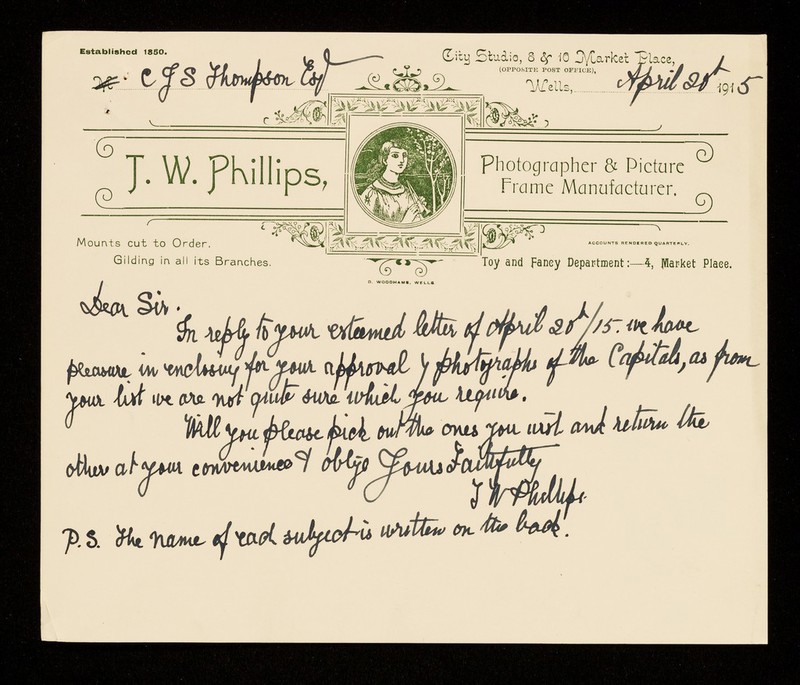 Established 1850.
City Studio, 8 & 10 Market Place,
(OPPOSITE POST OFFICE),
C J S Thompson Esq
Wells, April 20th 1915
T. W. Phillips,
Photographer & Picture
Frame Manufacturer.
Mounts cut to Order.
Gilding in all its Branches.
ACCOUNTS RENDERED QUARTERLY.
Toy and Fancy Department:—4, Market Place.
D. WOODHAMS, WELLS
Dear Sir.
In reply to your esteemed letter of April 20th/15. we have
pleasure in enclosing for your approval 4 photographs of the Capitals, as from
your list we are not quite sure which you require.
Will you please pick out the ones you wish and return the
other at your convenience & oblige Yours Faithfully
T W Phillips.
P.S. The name of each subject is written on the back.